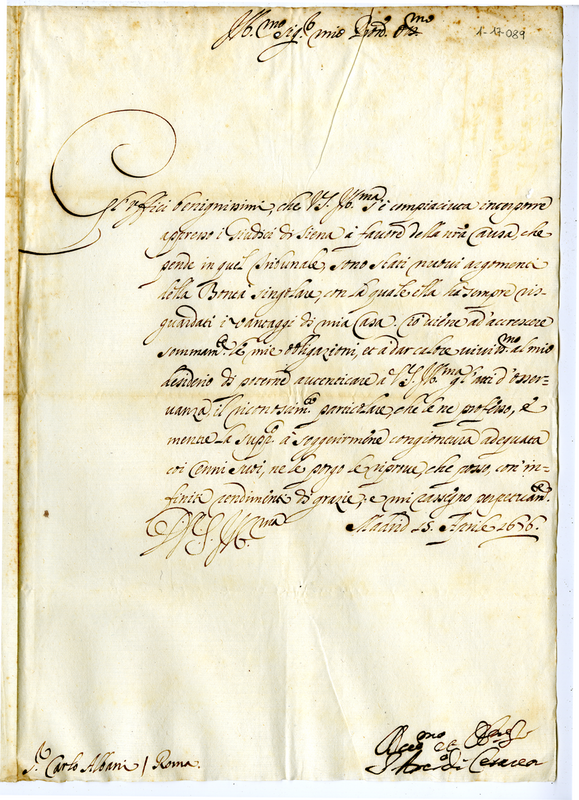 Ill.mo Sig.r mio P.ron Oss.mo
1-17-089
Gl'offici benignissimi, che V.S. Ill.ma si compiaciuta interporre
appresso i Giudici di Siena à favore della mia causa, che
pende in quel Tribunale, sono stati nuovi argomenti
della Bontà singolare, con la quale ella hà sempre ris-
guardati i vantaggi di mia Casa. Ciò viene ad'accrescere
sommam.te le mie obligazioni, et à dar calore al mio
desiderio di poterne autenticare à V.S. Ill.ma gl'atti d'osser-
vanza il riconoscim.to particolare, che le ne professo, e
mentre la supp.co à suggerirmene congiontura adeguata
coi cenni suoi, ne le porgo le riprove, che posso, con in-
finito rendimento di grazie, e mi rassegno perpetuam.te
D V.S. Ill.ma Madrid 25. Aprile 1676.
Aff.mo et Obl.
S.r Carlo Albani / Roma. L'Arc.o di Cesarea